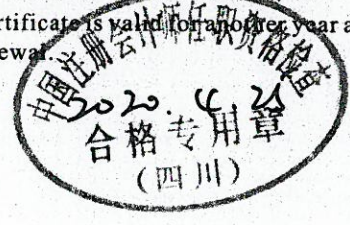 rtificate is valid for another year a
ewal.
中国注册会计师任职资格检查
2020. 4.
合格专用章
(四川)